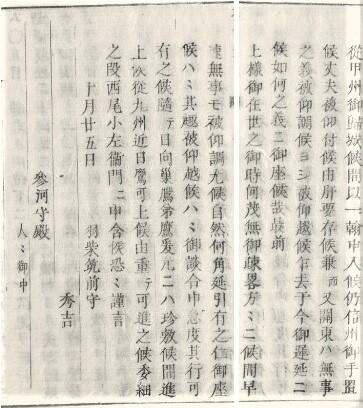 從甲州御歸城候間以一翰申入候仍信州御手置
候丈夫被仰付候由肝要存候兼而又關東ハ無事
之義被仰調候ヨシ被仰越候乍去于今御遲延ニ
候如何之義ニ御座候哉最前
上樣御在世之御時何茂無御疎畧方ミニ候間早
速無事モ被仰調尤候自然何角延引有之仁御座
候ハミ其趣被仰越候ハミ御談合申急度其行可
有之候隨テ日向巢鷹弟鷹爰元ニハ珍敷候間進
上候從九州近日鷹可上候由重テ可進之候委細
之段西尾小左衞門ニ申含候恐ミ謹言
十月廿五日
羽柴筑前守
秀吉
參河守殿
人ミ御中